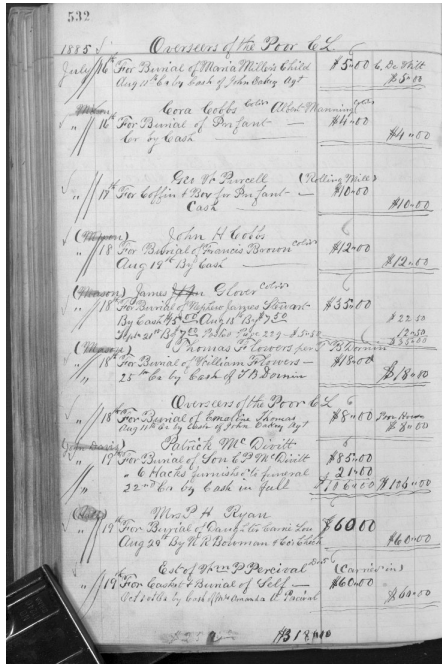 532
1885 Overseers of the Poor C.L.
July 16th For Burial of Maria Miller's Child $5.00 C. De Witt
Aug 11th Cr by Cash of John Oakey Agt $5.00
Cora Cobbs cold Albert Manning cold
" 16th For Burial of Infant $4.00
Cr by Cash $4.00
Geo W. Purcell (Rolling Mill)
" 17th For Coffin & Box for Infant $10.00
Cash $10.00
John H Cobbs
" 18 For Burial of Francis Brown cold $12.00
Aug 19th By Cash $12.00
(Mason) James Glover cold
" 18 For Burial of Nephew James Stewart $35.00
By Cash $15.00 Aug 18th By $7.50 $22.50
Sept 21st By 12.50
$35.00
Thomas Flowers per T B Dornin
" 18th For Burial of William Flowers $18.00
25th Cr by Cash of T B Dornin $18.00
Overseers of the Poor C L
" 18th For Burial of Thomas $8.00 House
Aug 11th Cr by Cash of John Oakey Agt $8.00
Patrick Mc Divitt
" 19th For Burial of Son C P Mc Divitt $85.00
" 6 Hacks furnished to funeral 21.00
22nd Cr by Cash in full $106.00 $106.00
Mrs P H Ryan
" 19th For Burial of Daughter Carrie Lou $60.00
Aug 29th By N R Bowman & Co's Check $60.00
Est of Wm P Percival (Carried in)
" 19th For Casket & Burial of Self $60.00
Oct settled by Cash of Mrs Amanda Percival $60.00
$318.00